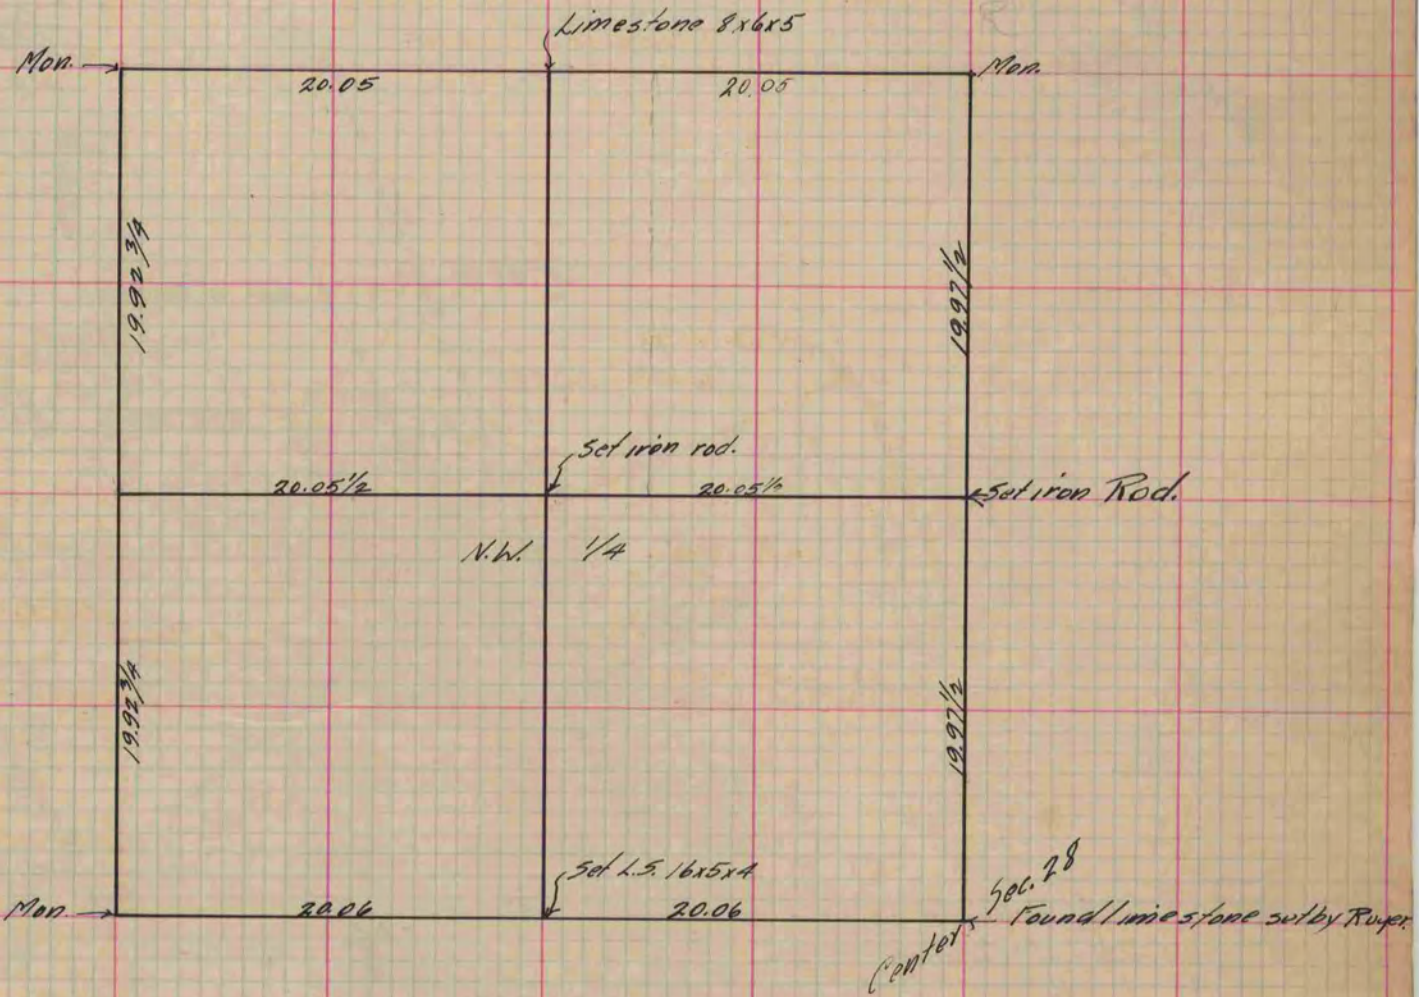 Limestone 8x6x5
Mon.
Mon.
20.05
20.05
19.92 3/4
19.97 1/2
Set iron rod.
20.05 1/2
20.05 1/2
Set iron Rod.
N.W. 1/4
19.92 3/4
19.97 1/2
Set L.S. 16x5x4
Sec. 28
Mon.
20.06
20.06
Found limestone set by
Center